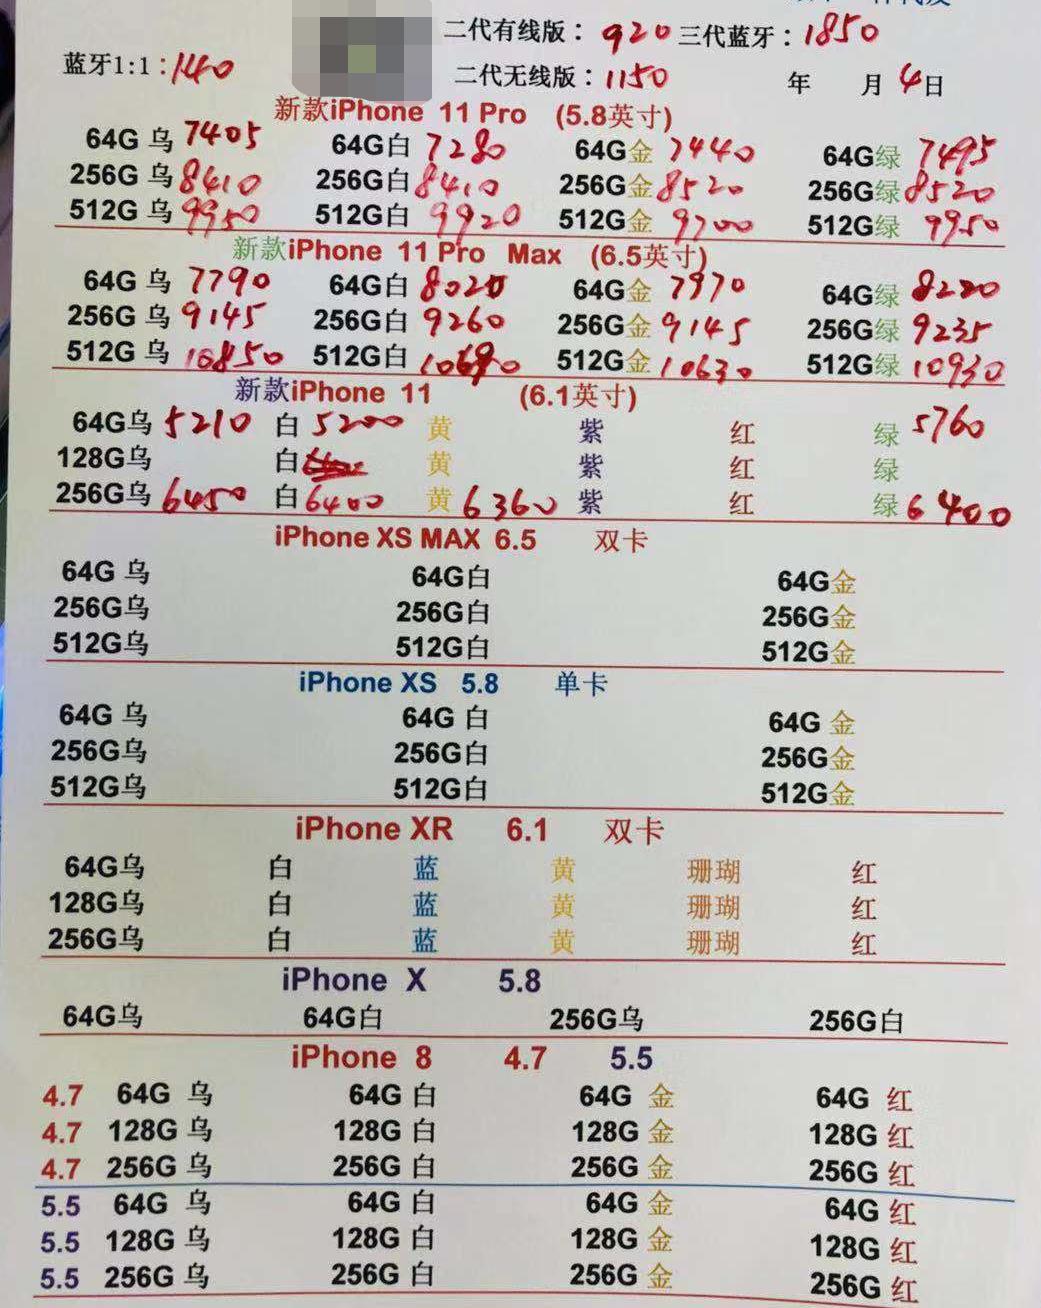 二代有线版：920 三代蓝牙：1850
蓝牙1:1:140 二代无线版：1150 年 月4日
新款iPhone 11 Pro (5.8英寸)
64G 乌 7405 64G白 7280 64G金 7440 64G绿 7495
256G 乌 8410 256G白 8410 256G金 8520 256G绿 8520
512G 乌 9950 512G白 9920 512G金 9700 512G绿 9950
新款iPhone 11 Pro Max (6.5英寸)
64G 乌 7790 64G白 64G金 7970 64G绿
256G 乌 9145 256G白 9260 256G金 9145 256G绿 9235
512G 乌 10850 512G白 512G金 10630 512G绿 10930
新款iPhone 11 (6.1英寸)
64G乌 5210 白 5200 黄 紫 红 绿 5760
128G乌 白 黄 紫 红 绿
256G乌 6450 白 6400 黄 6360 紫 红 绿 6400
iPhone XS MAX 6.5 双卡
64G 乌 64G白 64G金
256G乌 256G白 256G金
512G乌 512G白 512G金
iPhone XS 5.8 单卡
64G 乌 64G 白 64G 金
256G乌 256G白 256G金
512G乌 512G白 512G金
iPhone XR 6.1 双卡
64G乌 白 蓝 黄 珊瑚 红
128G乌 白 蓝 黄 珊瑚 红
256G乌 白 蓝 黄 珊瑚 红
iPhone X 5.8
64G乌 64G白 256G乌 256G白
iPhone 8 4.7 5.5
4.7 64G 乌 64G 白 64G 金 64G 红
4.7 128G 乌 128G 白 128G 金 128G 红
4.7 256G 乌 256G 白 256G 金 256G 红
5.5 64G 乌 64G 白 64G 金 64G 红
5.5 128G 乌 128G 白 128G 金 128G 红
5.5 256G 乌 256G 白 256G 金 256G 红